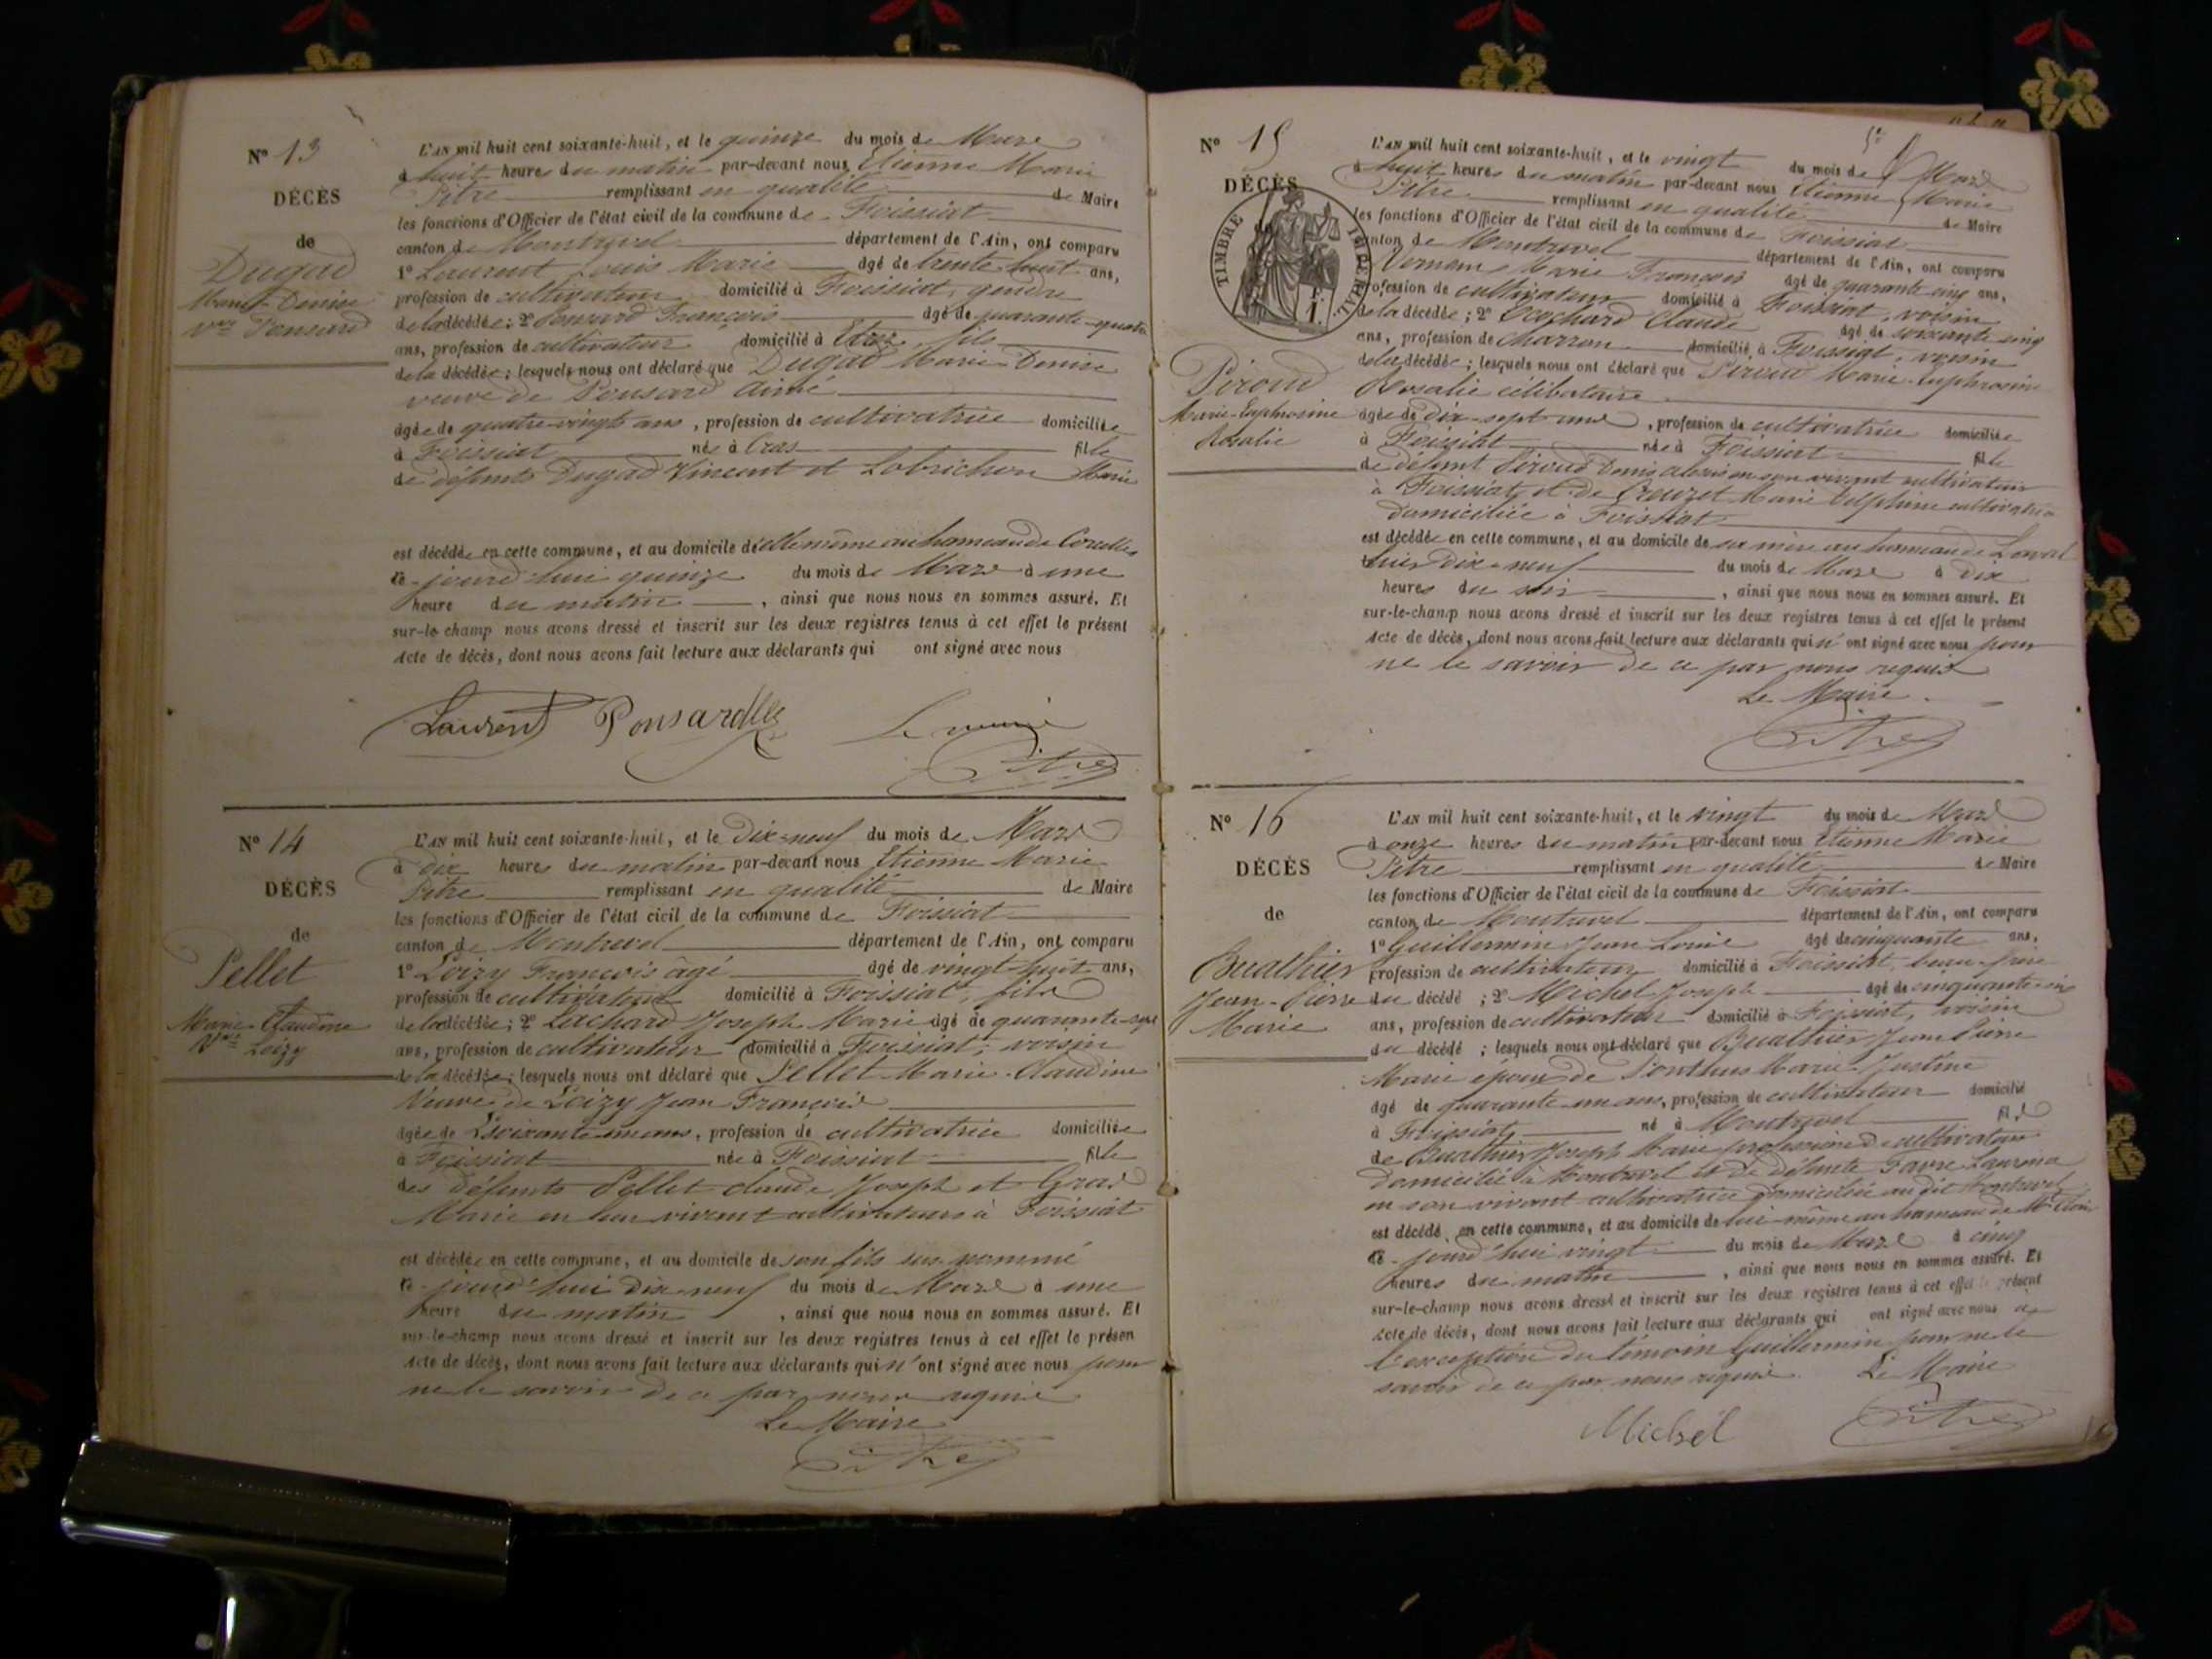 N° 13
DÉCÈS
de
Dugad
Marie Denise
Vve Ponsard
L'AN mil huit cent soixante-huit, et le quinze du mois de Mars
à huit heures du matin par-devant nous Etienne Marie
Pitre remplissant en qualité de Maire
les fonctions d'Officier de l'état civil de la commune de Foissiat
canton de Montrevel département de l'Ain, ont comparu
1° Laurent Louis Marie âgé de trente huit ans,
profession de cultivateur domicilié à Foissiat, gendre
de la décédée; 2° Ponsard François âgé de quarante-quatre
ans, profession de cultivateur domicilié à Etrez, fils
de la décédée; lesquels nous ont déclaré que Dugad Marie Denise
veuve de Ponsard Aimé
âgée de quatre-vingts ans, profession de cultivatrice domiciliée
à Foissiat née à Cras fille
de défunts Dugad Vincent et Lobrichon Marie
est décédée en cette commune, et au domicile d'elle même au hameau de Corcelles
ce jourd'hui quinze du mois de Mars à une
heure du matin, ainsi que nous nous en sommes assuré. Et
sur-le-champ nous avons dressé et inscrit sur les deux registres tenus à cet effet le présent
Acte de décès, dont nous avons fait lecture aux déclarants qui ont signé avec nous
Laurent Ponsard Le maire
Pitre
N° 14
DÉCÈS
de
Pellet
Marie-Claudine
Vve Loizy
L'AN mil huit cent soixante-huit, et le dix-neuf du mois de Mars
à dix heures du matin par-devant nous Etienne Marie
Pitre remplissant en qualité de Maire
les fonctions d'Officier de l'état civil de la commune de Foissiat
canton de Montrevel département de l'Ain, ont comparu
1° Loizy François âgé âgé de vingt-huit ans,
profession de cultivateur domicilié à Foissiat, fils
de la décédée; 2° Lachard Joseph Marie âgé de quarante-sept
ans, profession de cultivateur domicilié à Foissiat, voisin
de la décédée; lesquels nous ont déclaré que Pellet Marie-Claudine
Veuve de Loizy Jean François
âgée de soixante un ans, profession de cultivatrice domiciliée
à Foissiat née à Foissiat fille
des défunts Pellet Claude Joseph et Gras
Marie en leur vivant cultivateurs à Foissiat
est décédée en cette commune, et au domicile de son fils sus nommé
ce jourd'hui dix-neuf du mois de Mars à une
heure du matin, ainsi que nous nous en sommes assuré. Et
sur-le-champ nous avons dressé et inscrit sur les deux registres tenus à cet effet le présen
Acte de décès, dont nous avons fait lecture aux déclarants qui n'ont signé avec nous pour
ne le savoir de ce par nous requis
Le Maire
Pitre
N° 15
DÉCÈS
TIMBRE IMPERIAL
Piroud
Marie-Euphrosine
Rosalie
L'AN mil huit cent soixante-huit, et le vingt du mois de Mars
à huit heures du matin par-devant nous Etienne Marie
Pitre remplissant en qualité de Maire
les fonctions d'Officier de l'état civil de la commune de Foissiat
canton de Montrevel département de l'Ain, ont comparu
Marie François âgé de quarante cinq ans,
profession de cultivateur domicilié à Foissiat, voisin
de la décédée; 2° Cochard Claude âgé de soixante cinq
ans, profession de charron domicilié à Foissiat, voisin
de la décédée; lesquels nous ont déclaré que Piroud Marie-Euphrosine
Rosalie célibataire
âgée de dix-sept ans, profession de cultivatrice domiciliée
à Foissiat née à Foissiat fille
de défunt Piroud Denis en son vivant cultivateur
à Foissiat et de Creuzet Marie Delphine cultivatrice
domiciliée à Foissiat
est décédée en cette commune, et au domicile de sa mère au hameau de Laval
hier dix-neuf du mois de Mars à dix
heures du soir, ainsi que nous nous en sommes assuré. Et
sur-le-champ nous avons dressé et inscrit sur les deux registres tenus à cet effet le présent
Acte de décès, dont nous avons fait lecture aux déclarants qui n'ont signé avec nous pour
ne le savoir de ce par nous requis
Le Maire.
Pitre
N° 16
DÉCÈS
de
Buathier
Jean-Pierre
Marie
L'AN mil huit cent soixante-huit, et le vingt du mois de Mars
à onze heures du matin par-devant nous Etienne Marie
Pitre remplissant en qualité de Maire
les fonctions d'Officier de l'état civil de la commune de Foissiat
canton de Montrevel département de l'Ain, ont comparu
1° Guillermin Jean Louis âgé de cinquante ans,
profession de cultivateur domicilié à Foissiat, beau-frère
du décédé; 2° Michel Joseph âgé de cinquante-six
ans, profession de cultivateur domicilié à Foissiat, voisin
du décédé; lesquels nous ont déclaré que Buathier Jean Pierre
Marie époux de Ponthus Marie-Justine
âgé de quarante un ans, profession de cultivateur domicilié
à Foissiat né à Montrevel fils
de Buathier Joseph Marie profession de cultivateur
domicilié à Montrevel et de défunte Favre Laurence
en son vivant cultivatrice domiciliée au dit Montrevel
est décédé en cette commune, et au domicile de lui-même au hameau de
ce jourd'hui vingt du mois de Mars à cinq
heures du matin, ainsi que nous nous en sommes assuré. Et
sur-le-champ nous avons dressé et inscrit sur les deux registres tenus à cet effet le présent
Acte de décès, dont nous avons fait lecture aux déclarants qui ont signé avec nous à
l'exception du témoin Guillermin pour ne le
savoir de ce par nous requis. Le Maire
Michel Pitre